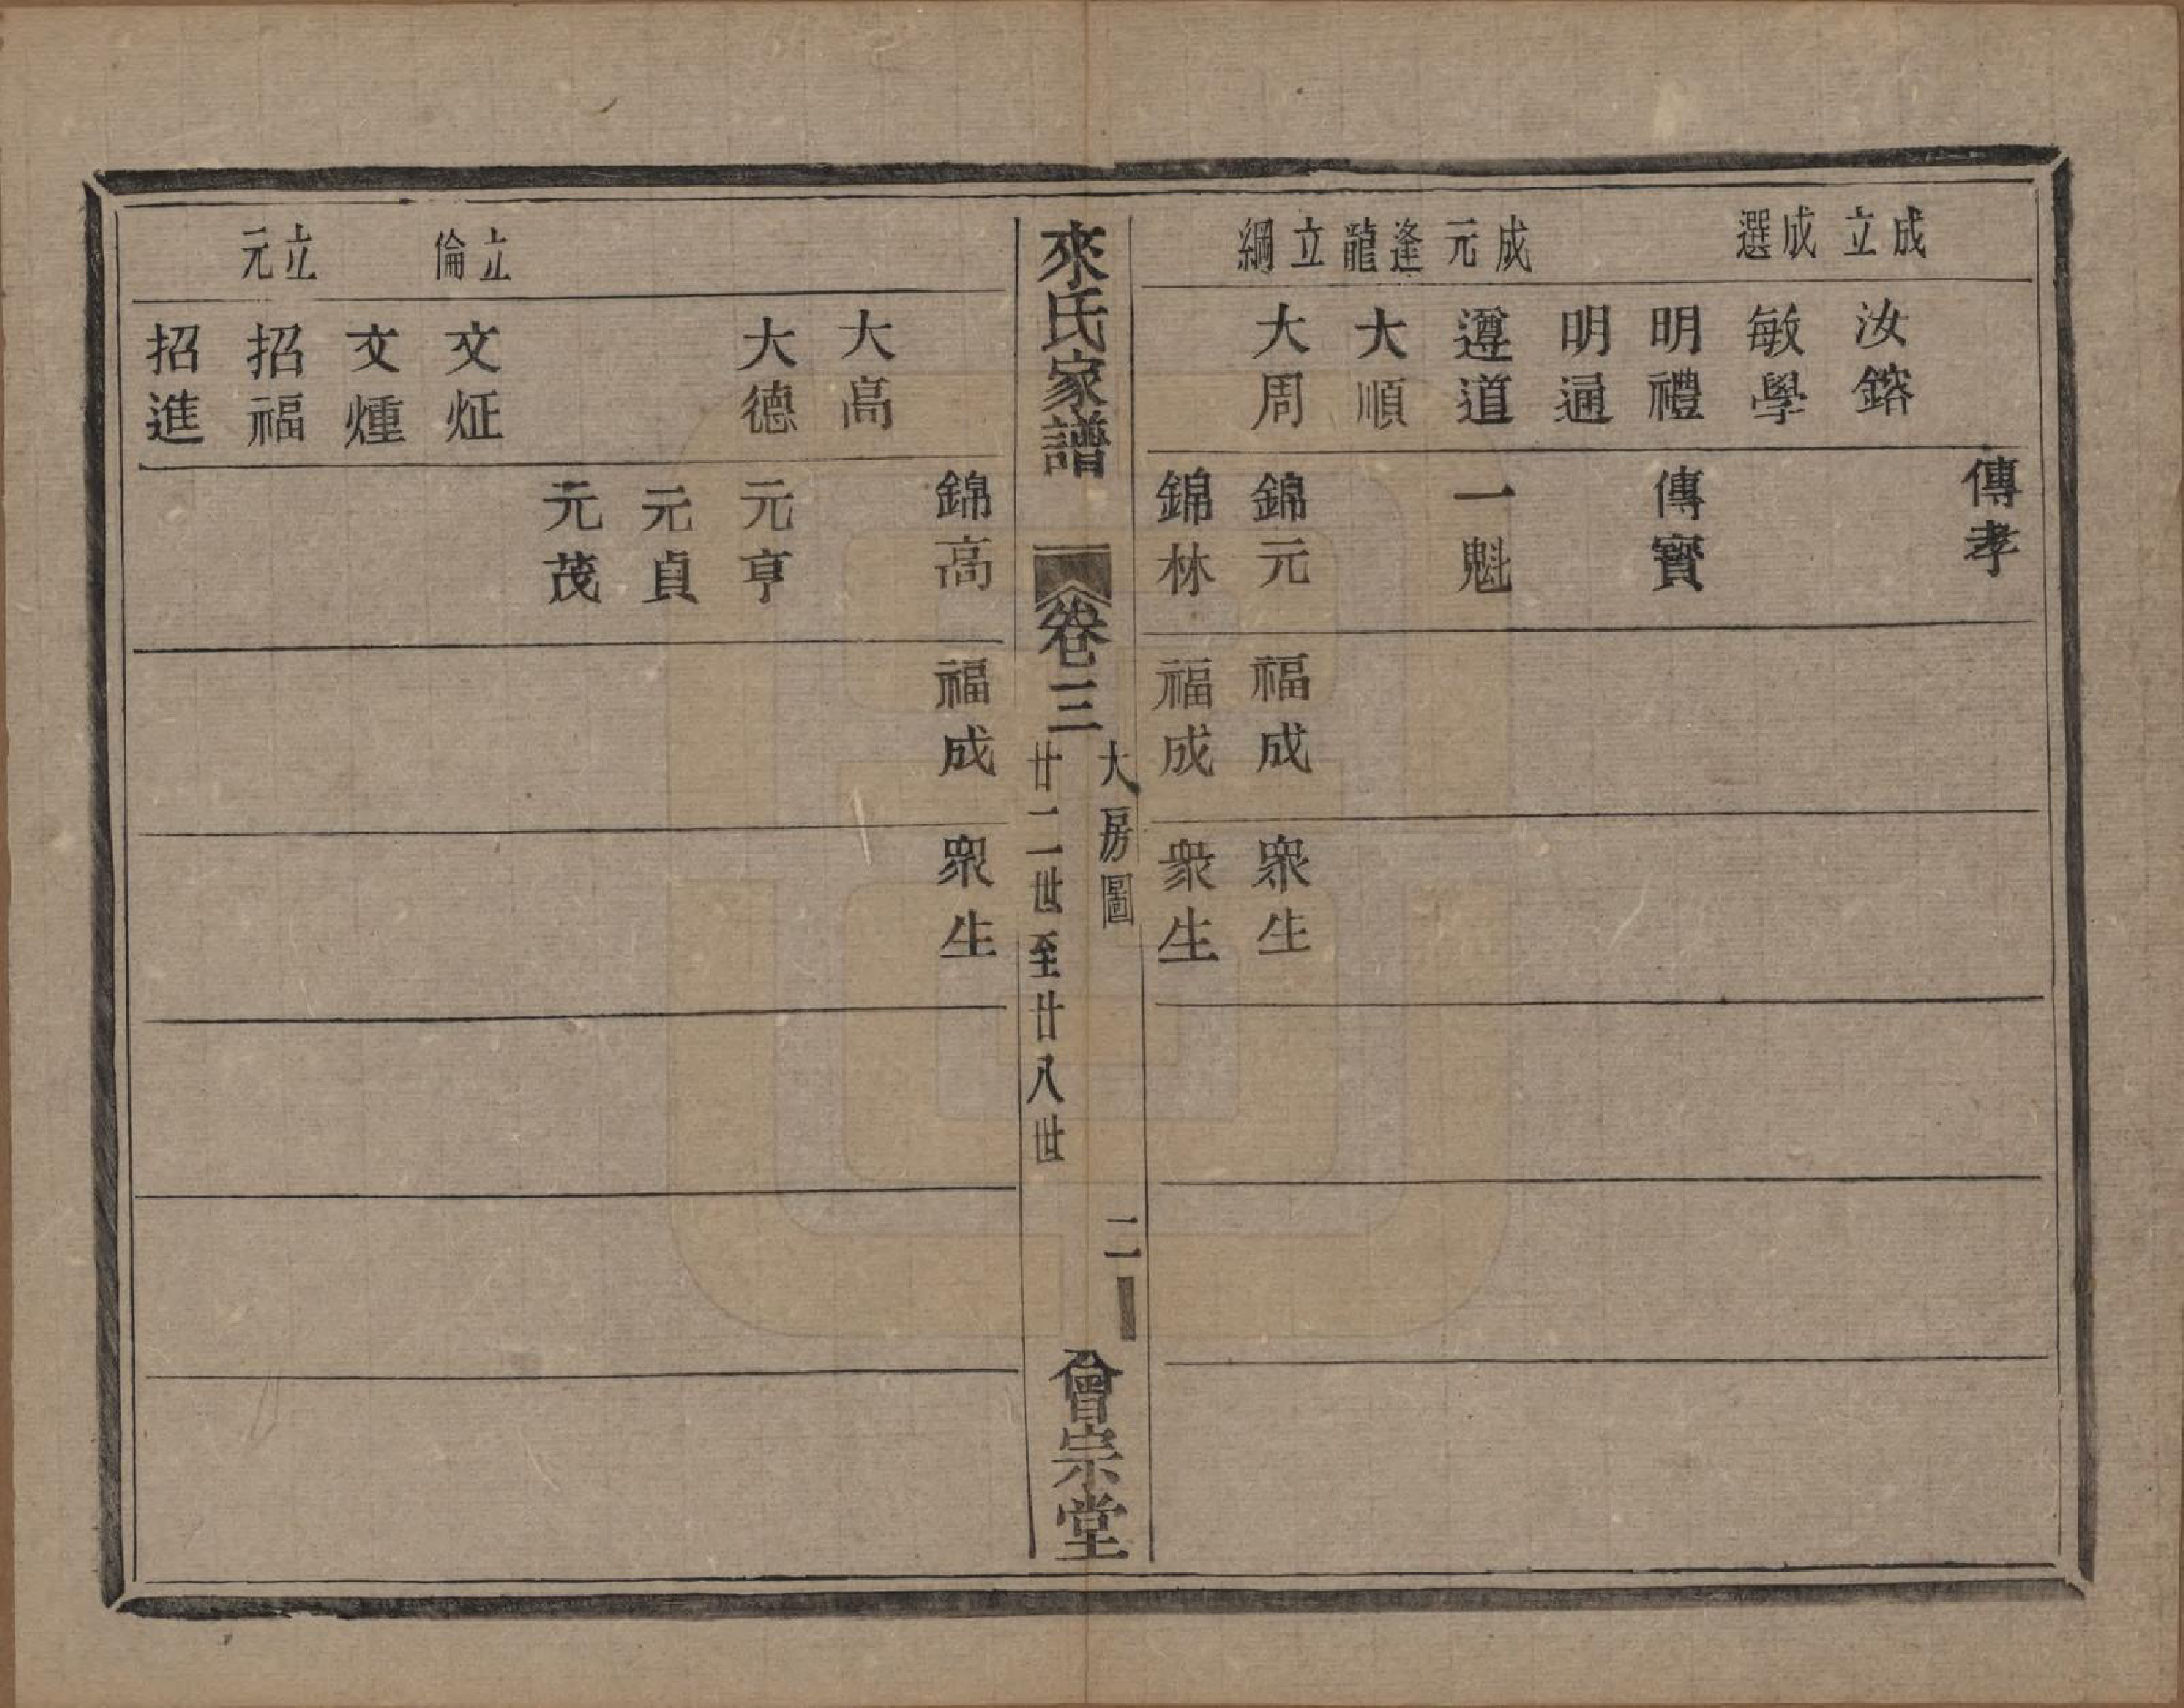 成立
成選
成元
逢龍
立綱
汝鎔
敏學
明禮
明通
遵道
大順
大周
傳孝
傳寳
一魁
錦元
錦林
福成
福成
衆生
衆生
來氏家譜
卷三
大房圖
廿二世至廿八世
二
會宗堂
立倫
立元
大高
大德
文炡
文煄
招福
招進
錦高
元亨
元貞
元茂
福成
衆生